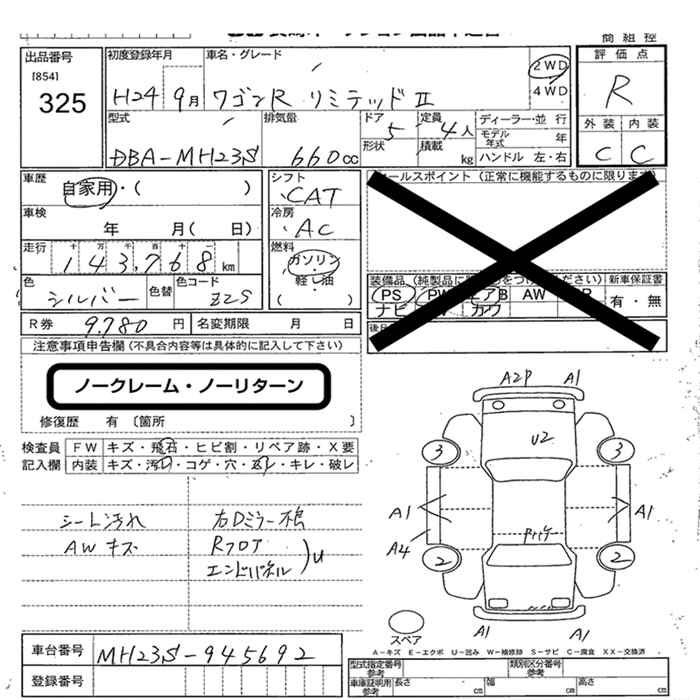 商 組 控
出品番号
[854]
325
初度登録年月
H24 9月
車名・グレード
ワゴンR リミテッドⅡ
2WD
4WD
評価点
R
外装 内装
C C
型式
DBA-MH23S
排気量
660cc
ドア 5
形状
定員 4人
積載 kg
ディーラー・並行
モデル年式 年
ハンドル 左・右
車歴
自家用・( )
シフト
CAT
車検
年 月( 日)
冷房
AC
走行
十 万 千 百 十 一
143,768km
燃料
ガソリン・
軽油
( )
色
シルバー
色替
色コード
Z2S
R券 9.780円
名変期限 月 日
セールスポイント(正常に機能するものに限ります)
新車保証書
有・無
PS PW AW
ナビ カワ
注意事項申告欄(不具合内容等は具体的に記入して下さい)
ノークレーム・ノーリターン
修復歴 有 〔箇所 〕
検査員
記入欄
FW キズ・飛石・ヒビ割・リペア跡・X要
内装 キズ・汚れ・コゲ・穴・ スレ・キレ・破レ
シート汚れ
AWキズ
右Dミラー
Rフロア
エンドパネル
U
A2P A1
U2
3 3
A1 A1
A4
2 2
A1 A1
スペア
A-キズ E-エクボ U-凹み W-補修跡 S-サビ C-腐食 XX-交換済
車台番号
MH23S-945692
登録番号
型式指定番号
参考
類別区分番号
参考
車庫証明用
参考
長さ cm
幅 cm
高さ cm